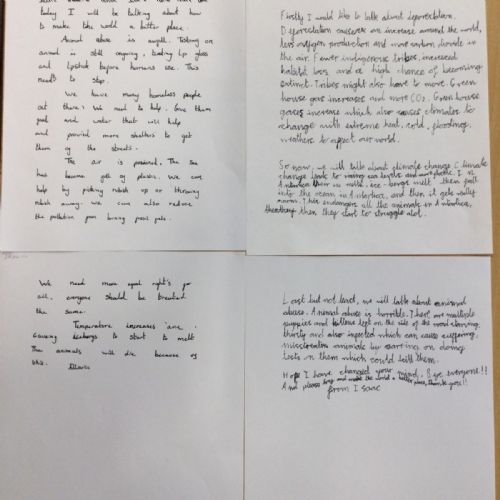 today I will be talking about how
to make the world a better place.
Animal abuse is awfull. Testing on
animal is still ongoing, testing lip gloss
and lipstick before humans use. This
needs to stop.
We have many homeless people
out there! We need to help. Give them
food and water that will help
and provied more shelters to get
them of the streets.
The air is poisoned. The sea
has become full of plastic. We can
help by picking rubish up or throwing
rubish away. We can also reduce
the pollution from burning fossil fuels.
We need more equal right's for
all, everyone should be treated
the same.
Temperature increases are
causing icebergs to start to melt
The animals will die because of
this.
Firstly I would like to talk about deforestation.
Deforestation causes an increase around the world,
less oxygen production and more carbon dioxide in
the air. Fewer indigenous tribes, increased
habitat loss and a high chance of becoming
extinct. Tribes might also have to move. Green
house gas increases and more CO2. Green house
gases increase which also causes climates to
change with extreme heat, cold, floodings,
weathers to affect our world.
So now, we will talk about climate change. Climate
change leads to rising sea levels and
Antarctica their is ice-bergs melt then fall
into the ocean in Antarctica, and then it gets really
warm. This endangers all the animals in Antarctica,
then they start to struggle alot.
Last but not least, we will talk about animal
abuse. Animal abuse is horrible. There are multiple
puppies and kittens left on the side of the road starving,
thirsty and also injected which can cause suffering,
animals by carrying on doing
tests on them which could kill them.
Hope I have changed your mind. Bye everyone!!
And please try and make the world a better place, thank you!!
from Isaac